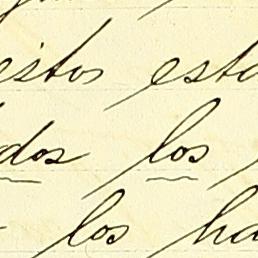 estos esta
dos los
los ha